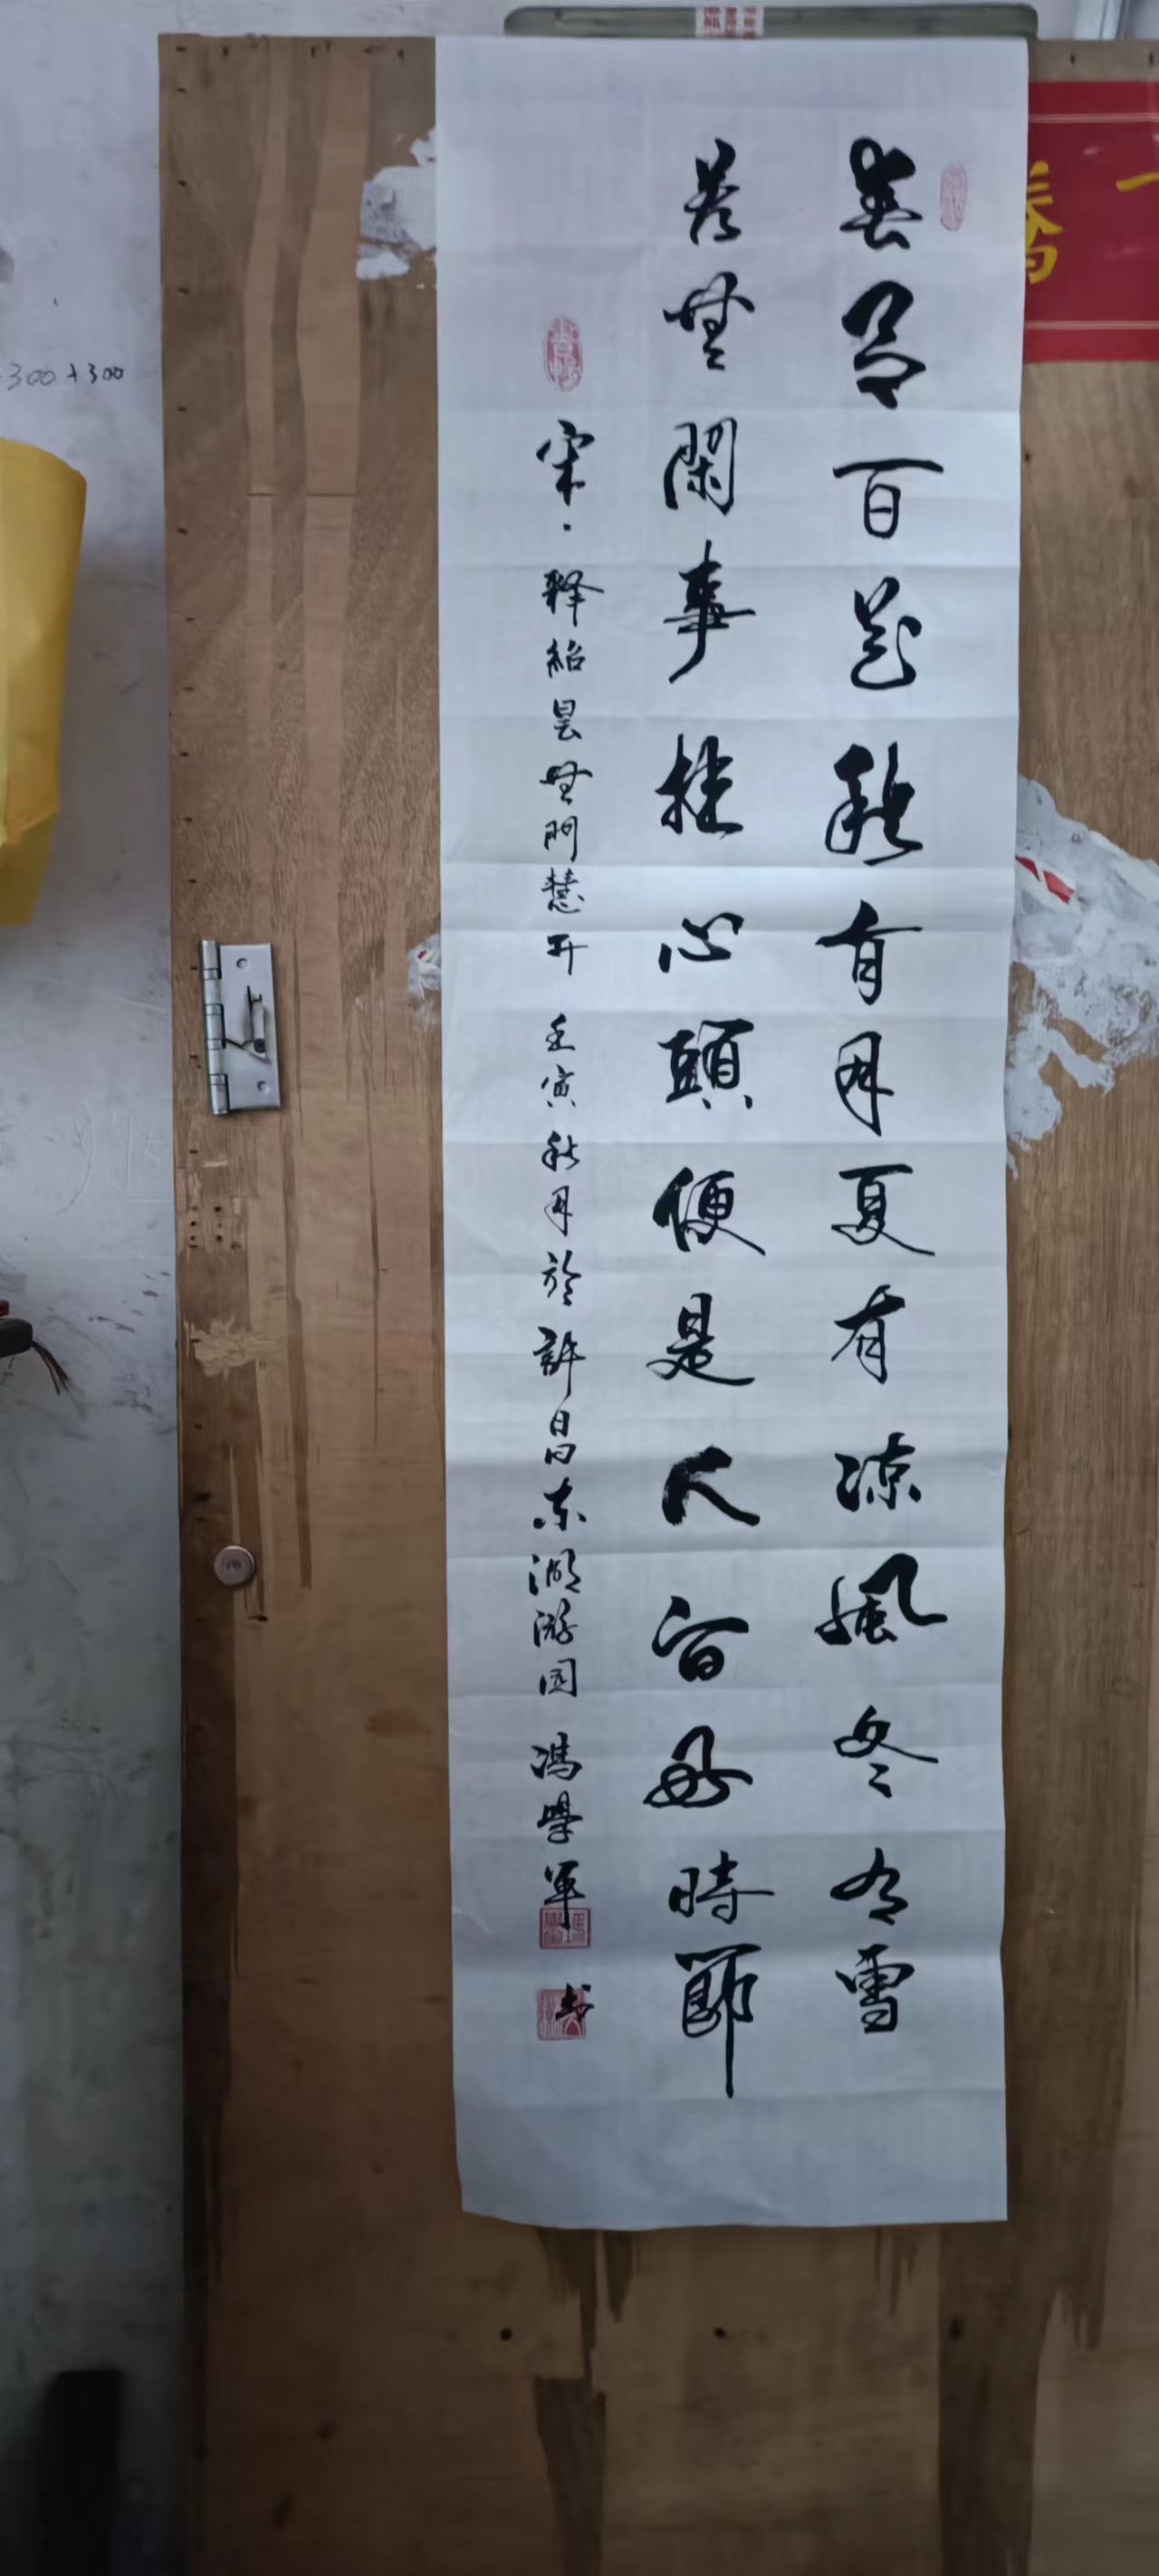 春有百花秋有月夏有凉風冬有雪
若無閑事挂心頭便是人间好時節
宋·释紹昙無門慧开 壬寅秋月於許昌东湖游园 冯學軍 书
300+300